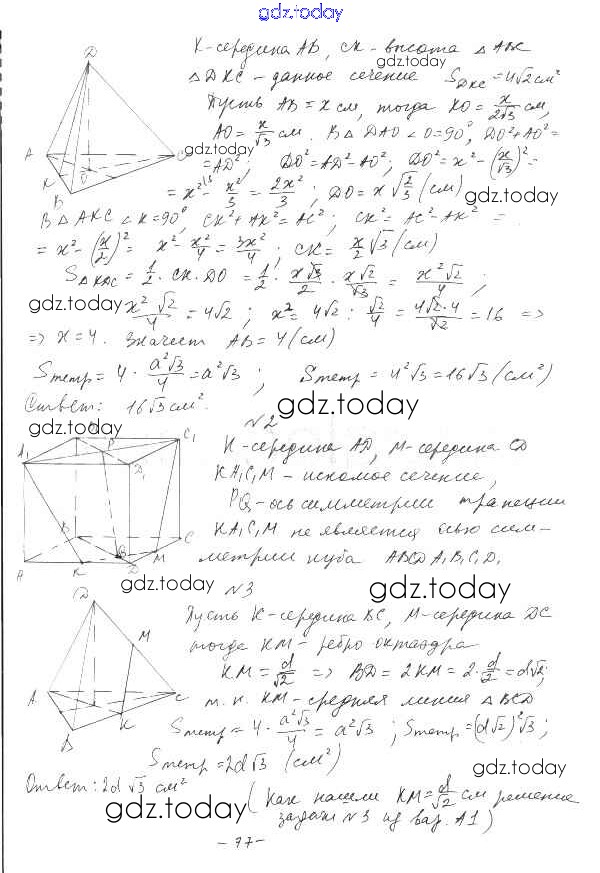 gdz.today
K-середина AB, CK-высота △ABC
gdz.today
△DKC - данное сечение S△DKC = 4√2 см²
Пусть AB = x см, тогда KO = x/2√3 см,
AO = x/√3 см. В △DAO ∠O=90°, DO²+AO²=
gdz.today
=AD²; DO²=AD²-AO²; DO²=x²-(x/√3)²=
= x² - x²/3 = 2x²/3; DO = x√2/3 (см)
gdz.today
В △AKC ∠K=90°, CK²+AK²=AC²; CK²=AC²-AK² =
= x²-(x/2)² = x² - x²/4 = 3x²/4; CK = x/2 √3 (см)
S△KDC = 1/2 · CK · DO = 1/2 · x√3/2 · x√2/√3 = x²√2/4;
gdz.today
x²√2/4 = 4√2; x² = 4√2 : √2/4 = 4√2·4/√2 = 16 =>
=> x=4. Значит AB = 4 (см)
Sтетр = 4 · a²√3/4 = a²√3; Sтетр = 4²√3 = 16√3 (см²)
Ответ: 16√3 см².
gdz.today
gdz.today
N2
K-середина AD, M-середина CD
KA₁C₁M - искомое сечение,
PQ-ось симметрии трапеции
KA₁C₁M не является осью сим-
метрии куба ABCDA₁B₁C₁D₁
gdz.today
gdz.today
N3
Пусть K-середина BC, M-середина DC
тогда KM - ребро октаэдра
KM = d/√2 => BD = 2KM = 2·d/√2 = d√2;
т.к. KM-средняя линия △BCD
Sтетр = 4 · a²√3/4 = a²√3; Sтетр = (d√2)²√3;
Sтетр = 2d√3 (см²)
gdz.today
Ответ: 2d√3 см²
gdz.today
(Как нашли KM = d/√2 см решение
задачи N3 из вар. A1)
- 77 -